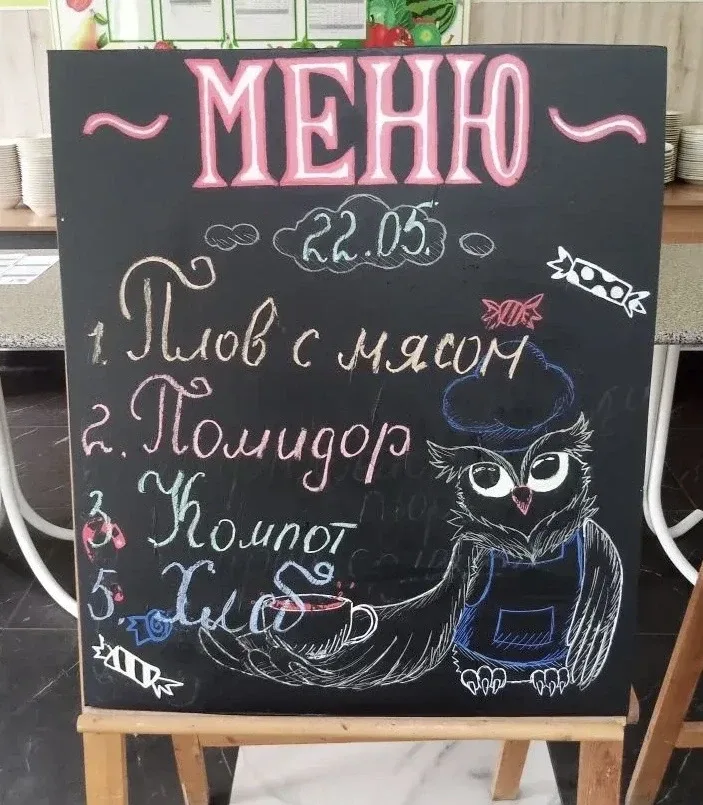 ~ МЕНЮ ~
22.05.
1. Плов с мясом
2. Помидор
3. Компот
5. Хлеб